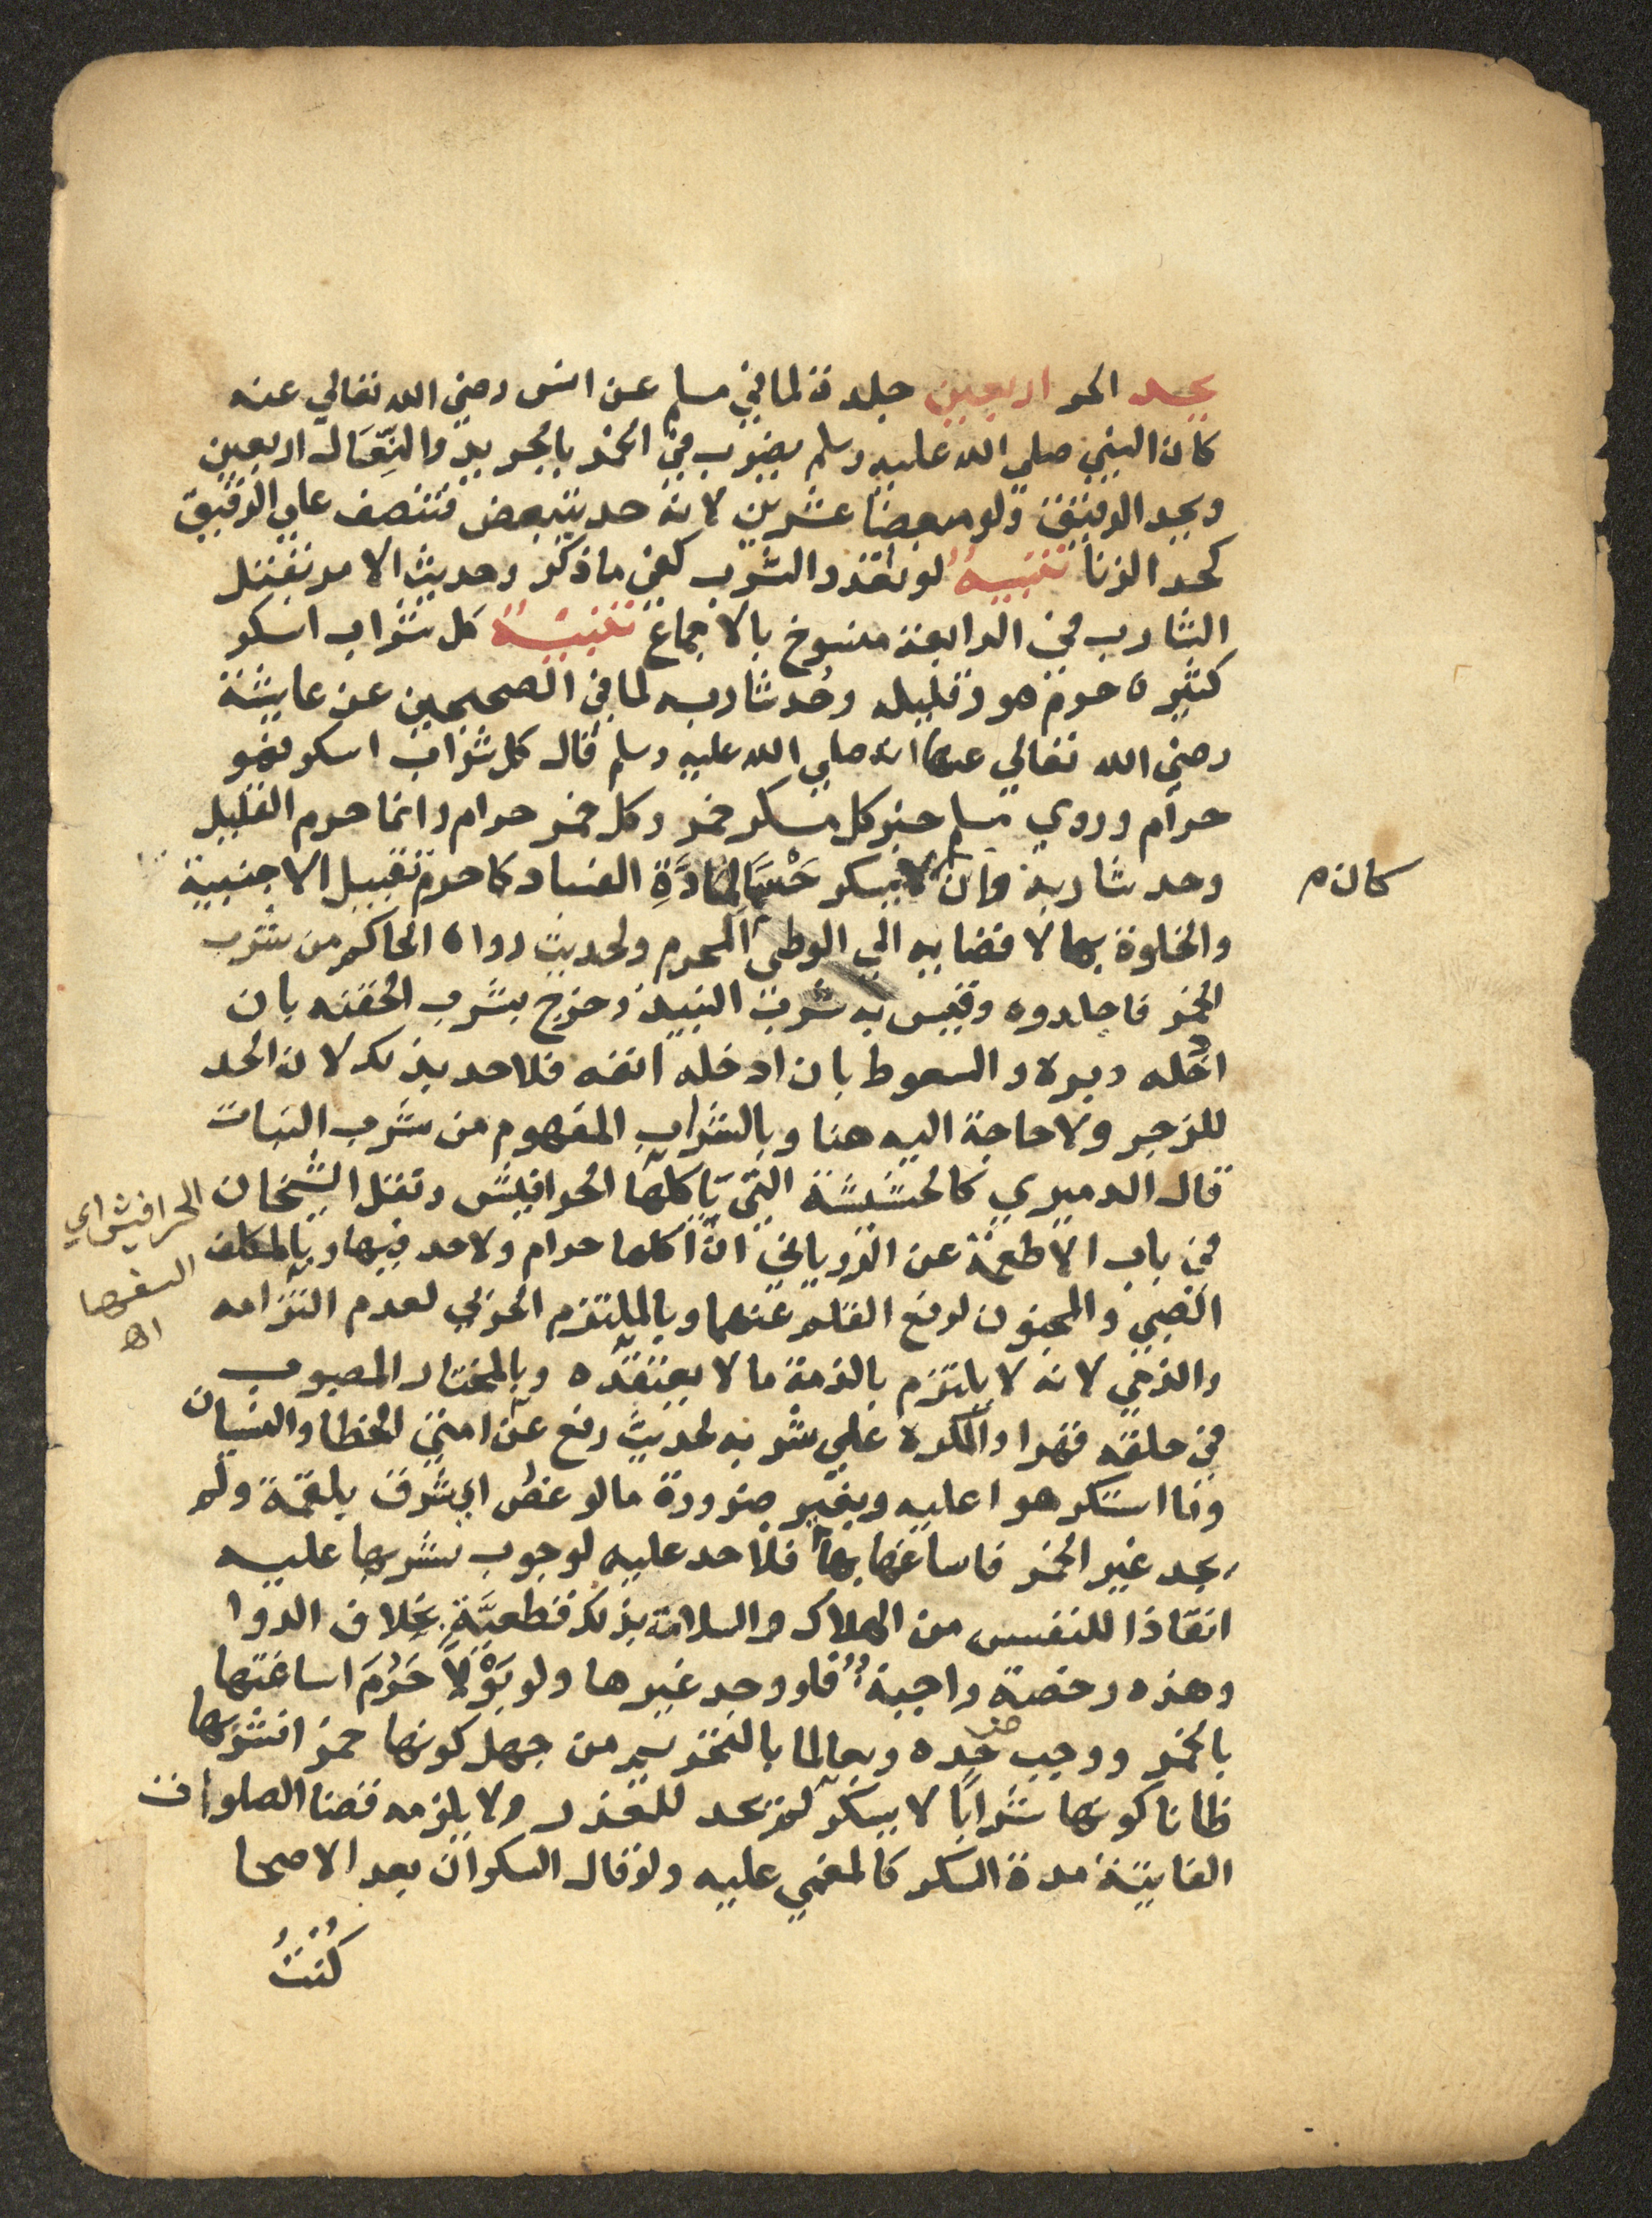 يحد الحر اربعين جلدة لما في مسلم عن انس رضي الله تعالي عنه
كان النبي صلي الله عليه وسلم يضرب في الخمر بالجريد والنِّعَال اربعين
ويحد الرقيق ولو مبعضا عشرين لانه حد يتبعض فتنصف علي الرقيق
كحد الزنا تنبيه لو تعدد الشرب كفي ما ذكر وحديث الامر بقتل
الشارب في الرابعة منسوخ بالاجماع تنبيه كل شراب اسكر
كثيره حرم هو وقليله وحُد شاربه لما في الصحيحين عن عايشة
رضي الله تعالي عنها انه صلي الله عليه وسلم قال كل شراب اسكر فهو
حرام وروي مسلم خبر كل مسكر خمر وكل خمر حرام وانما حرم القليل
وحد شاربه وان كان لا يسكر حَسْمًا لِمَادَّةِ الفساد كما حرم تقبيل الاجنبية
والخلوة بها لافضايه الي الوطي المحرم ولحديث رواه الحاكم من شرب
الخمر فاجلدوه وقيس به شرب النبيذ وخرج بشرب الحقنه بان
ادخله دبره والسعوط بان ادخله انفه فلا حد بذلك لان الحد
للزجر ولا حاجة اليه هنا وبالشراب المفهوم من شرب النبات
قال الدميري كالحشيشة التي ياكلها الحرافيش ونقل الشيخان
الحرافيش اي
السفها
اه
في باب الاطعمة عن الروياني ان اكلها حرام ولا حد فيها وبالمكلف
الصبي والمجنون لرفع القلم عنهما وبالملتزم الحربي لعدم التزامه
والذمي لانه لا يلتزم بالذمة ما لا يعتقده وبالمختار المصبوب
في حلقه قهرا والمكره علي شربه لحديث رفع عن امتي الخطا والنسيان
وما استكرهوا عليه وبغير ضرورة ما لو غص اي شرق بلقمة ولم
يجد غير الخمر فاساغها بها فلا حد عليه لوجوب شربها عليه
انقاذا للنفس من الهلاك والسلامة بذلك قطعيَّة بخلاف الدوا
وهذه رخصة واجبة فلو وجد غيرها ولو بَوْلاً حَرُمَ اساغتها
بالخمر ووجب حده وبعالما بالتحريم من جهل كونها خمرا فشربها
ظانا كونها شرابًا لا يسكر لم يحد للعذر ولا يلزمه قضا الصلوات
الفايتة مدة السكر كالمغمي عليه ولو قال السكران بعد الاصحا
كُنْتُ